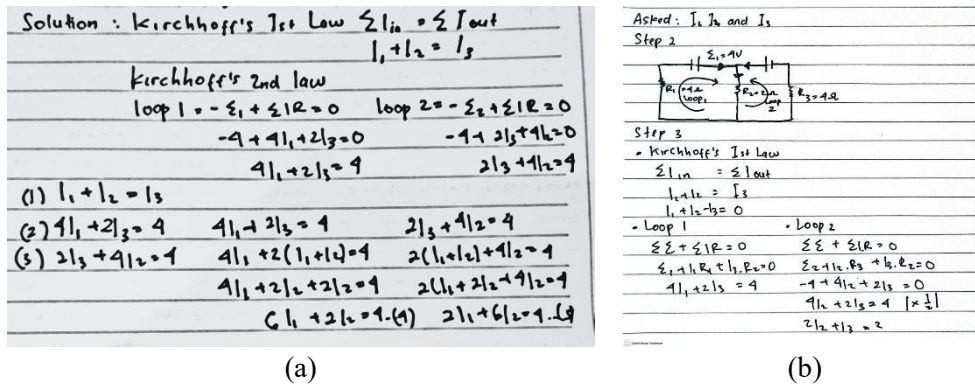 Solution : Kirchhoff's Ist Law Σ Iin = Σ Iout
I₁ + I₂ = I₃
Kirchhoff's 2nd law
loop 1 = - Ɛ₁ + ΣIR = 0 loop 2 = - Ɛ₂ + ΣIR = 0
-4 + 4I₁ + 2I₃ = 0 -4 + 2I₃ + 4I₂ = 0
4I₁ + 2I₃ = 4 2I₃ + 4I₂ = 4
(1) I₁ + I₂ = I₃
(2) 4I₁ + 2I₃ = 4 4I₁ + 2I₃ = 4 2I₃ + 4I₂ = 4
(3) 2I₃ + 4I₂ = 4 4I₁ + 2(I₁+I₂) = 4 2(I₁+I₂) + 4I₂ = 4
4I₁ + 2I₂ + 2I₂ = 4 2(I₁ + 2I₂ + 4I₂ = 4
6I₁ + 2I₂ = 4 ..(4) 2I₁ + 6I₂ = 4 ..(5)
(a)
Asked : I₁ I₂ and I₃
Step 2
Ɛ₁ = 4V
R₁ = 4Ω Loop 1 R₂ = 2Ω Loop 2 R₃ = 4Ω
Step 3
• Kirchhoff's Ist Law
Σ I in = Σ I out
I₁ + I₂ = I₃
I₁ + I₂ - I₃ = 0
• Loop 1 • Loop 2
ΣƐ + ΣIR = 0 ΣƐ + ΣIR = 0
Ɛ₁ + I₁ R₁ + I₃. R₂ = 0 Ɛ₂ + I₂. R₃ + I₃. R₂ = 0
4I₁ + 2I₃ = 4 -4 + 4I₂ + 2I₃ = 0
4I₂ + 2I₃ = 4 |× ½|
2I₂ + I₃ = 2
(b)